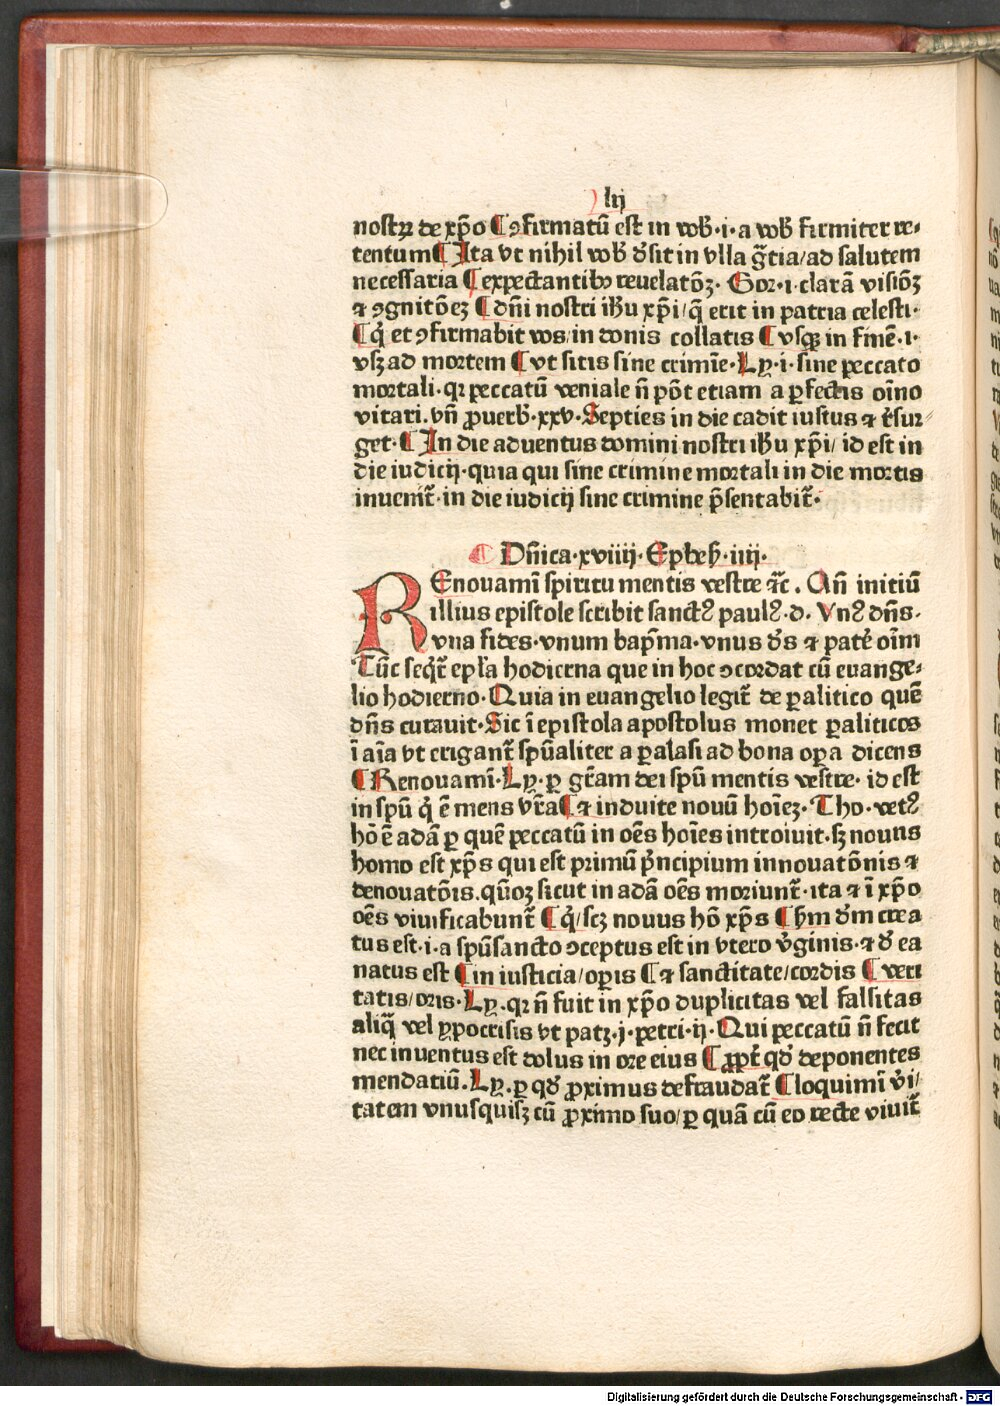 lij
nostrꝝ de xp̄o ¶ ꝯfirmatū est in vob̄·i·a vob̄ firmiter re⸗
tentum¶ Ita vt nihil vob̄ d̄sit in vlla gr̄tia/ad salutem
necessaria ¶ expectantibꝰ reuelatōꝫ· Gor·i·clarā visiōꝫ
⁊ ꝯgnitōeꝫ ¶ dn̄i nostri ih̄u xp̄i/q̄ erit in patria celesti·
¶ q̇ et ꝯfirmabit vos/in donis collatis ¶ vsqꝫ in finē·i·
vsꝫ ad mortem ¶ vt sitis sine crimīe·Ly·i·sine peccato
mortali·qꝛ peccatū veniale n̄ pōt etiam a ꝑfectis oīno
vitari.vn̄ ꝓuerb̄·xxv·Septies in die cadit iustus ⁊ r̄sur⸗
get·¶ In die aduentus domini nostri ih̄u xp̄i/ id est in
die iudicij·quia qui sine crimine mortali in die mortis
inuenit̄·in die iudicij sine crimine p̄sentabit̄·
¶ Dn̄ica·xviiij·Epheh̄·iiij·
REnouamī spiritu mentis vestre ⁊c̄. An̄ initiū
illius epistole scribit sanctꝰ paulꝰ·d·Vnꝰ dn̄s·
vna fides·vnum bap̄ma·vnus d̄s ⁊ pater̄ oīm
Tūc seqt̄ ep̄la hodierna que in hoc ꝯcordat cū euange⸗
lio hodierno·Quia in euangelio legit̄ de ꝑalitico quē
dn̄s curauit·Sic ī epistola apostolus monet ꝑaliticos
ī aīa vt erigant̄ spūaliter a ꝑalasi ad bona oꝑa dicens
¶ Renouamī·Ly·ꝑ gr̄am dei spū mentis vestre·id est
in spū q̇ ē mens vr̄a¶ ⁊ induite nouū hoīeꝫ·Tho·vetꝰ
hō ē adā ꝑ quē peccatū in oēs hoīes introiuit·sꝫ nouus
homo est xp̄s qui est primū p̄ncipium innouatōnis ⁊
denouatōis.qūoꝫ sicut in adā oēs moriunt̄·ita ⁊ ī xp̄o
oēs viuificabunt̄ ¶ q̇/scꝫ nouus hō xp̄s ¶ hm̄ d̄m crea
tus est·i·a spūsancto ꝯceptus est in vtero v̄ginis·⁊ d̄ ea
natus est ¶ in iusticia/oꝑis ¶ ⁊ sanctitate/cordis ¶ veri
tatis/oris·Ly.qꝛ n̄ fuit in xp̄o duplicitas vel falsitas
aliq̄ vel ypocrisis vt patꝫ·j·petri·ij·Qui peccatū n̄ fecit
nec inuentus est dolus in ore eius ¶ ꝓpt̄ qd̄ deponentes
mendatiū.Ly·ꝑ qd̄ ꝓximus defraudat̄ ¶ loquimī v̄i/
tatem vnusquisꝫ cū ꝓximo suo/ꝑ quā cū eo recte viuit̄
Digitalisierung gefördert durch die Deutsche Forschungsgemeinschaft - DFG